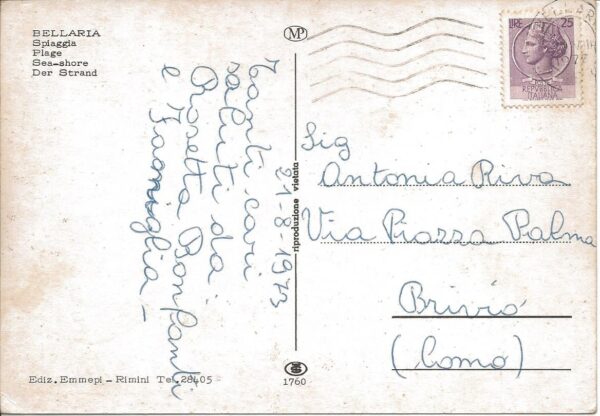 BELLARIA
Spiaggia
Plage
Sea-shore
Der Strand
MP
LIRE 25
REPVBBLICA
ITALIANA
Tanti cari
saluti da
Rosetta Bonfanti
e Famiglia -
21-8-1973
riproduzione vietata
Sig
Antonia Riva
Via Piazza Palma
Brivio
(Como)
Ediz. Emmepi - Rimini Tel. 28405
1760